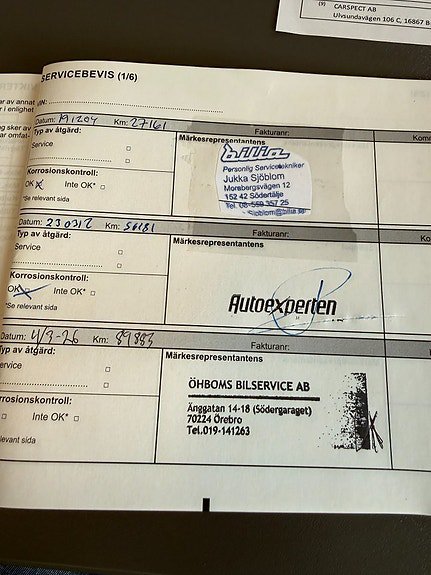 (9) CARSPECT AB
Ulvsundavägen 106 C, 16867 B
SERVICEBEVIS (1/6)
VIN:
Datum: 191204 Km: 27161 Fakturanr:
Typ av åtgärd:
Service
Korrosionskontroll:
OK Inte OK*
*Se relevant sida
Märkesrepresentantens
bilia
Personlig Servicetekniker
Jukka Sjöblom
Morabergsvägen 12
152 42 Södertälje
Tel. 08-559 357 25
Sjoblom@bilia.se
Datum: 230312 Km: Fakturanr:
Typ av åtgärd:
Service
Korrosionskontroll:
OK Inte OK*
*Se relevant sida
Märkesrepresentantens
Autoexperten
Datum: 4/3-26 Km: 89883 Fakturanr:
Typ av åtgärd:
ervice
rosionskontroll:
Inte OK*
elevant sida
Märkesrepresentantens
ÖHBOMS BILSERVICE AB
Änggatan 14-18 (Södergaraget)
70224 Örebro
Tel.019-141263